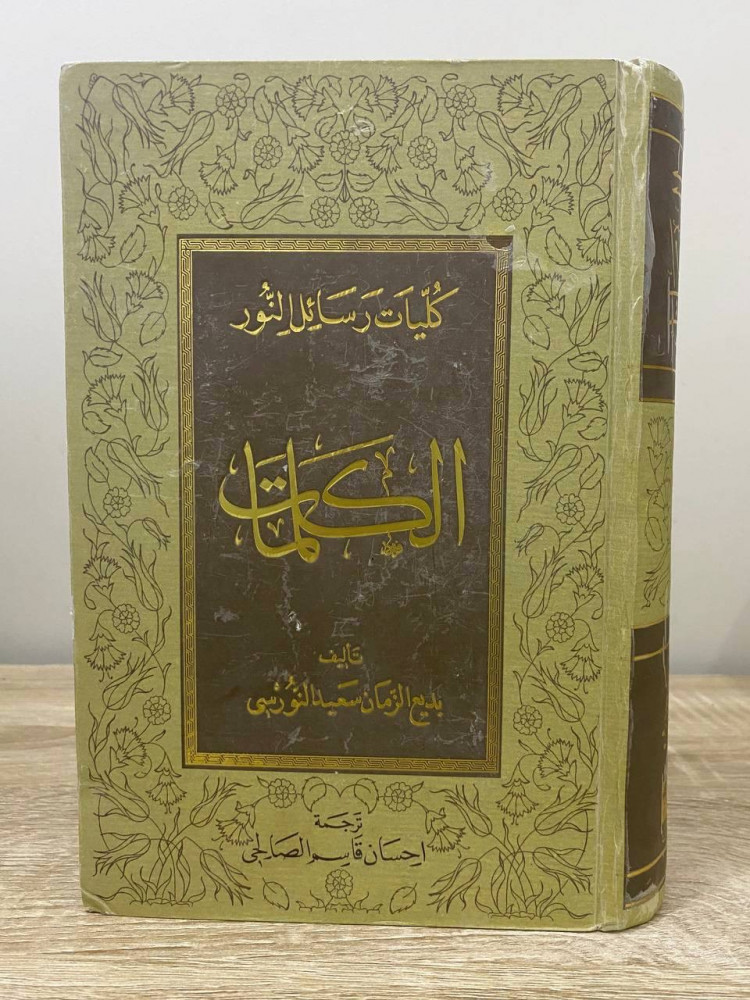 كُلِّيَات رَسَائِل النُّور
الكلمات
تأليف
بديع الزمان سعيد النورسي
ترجمة
إحسان قاسم الصالحي